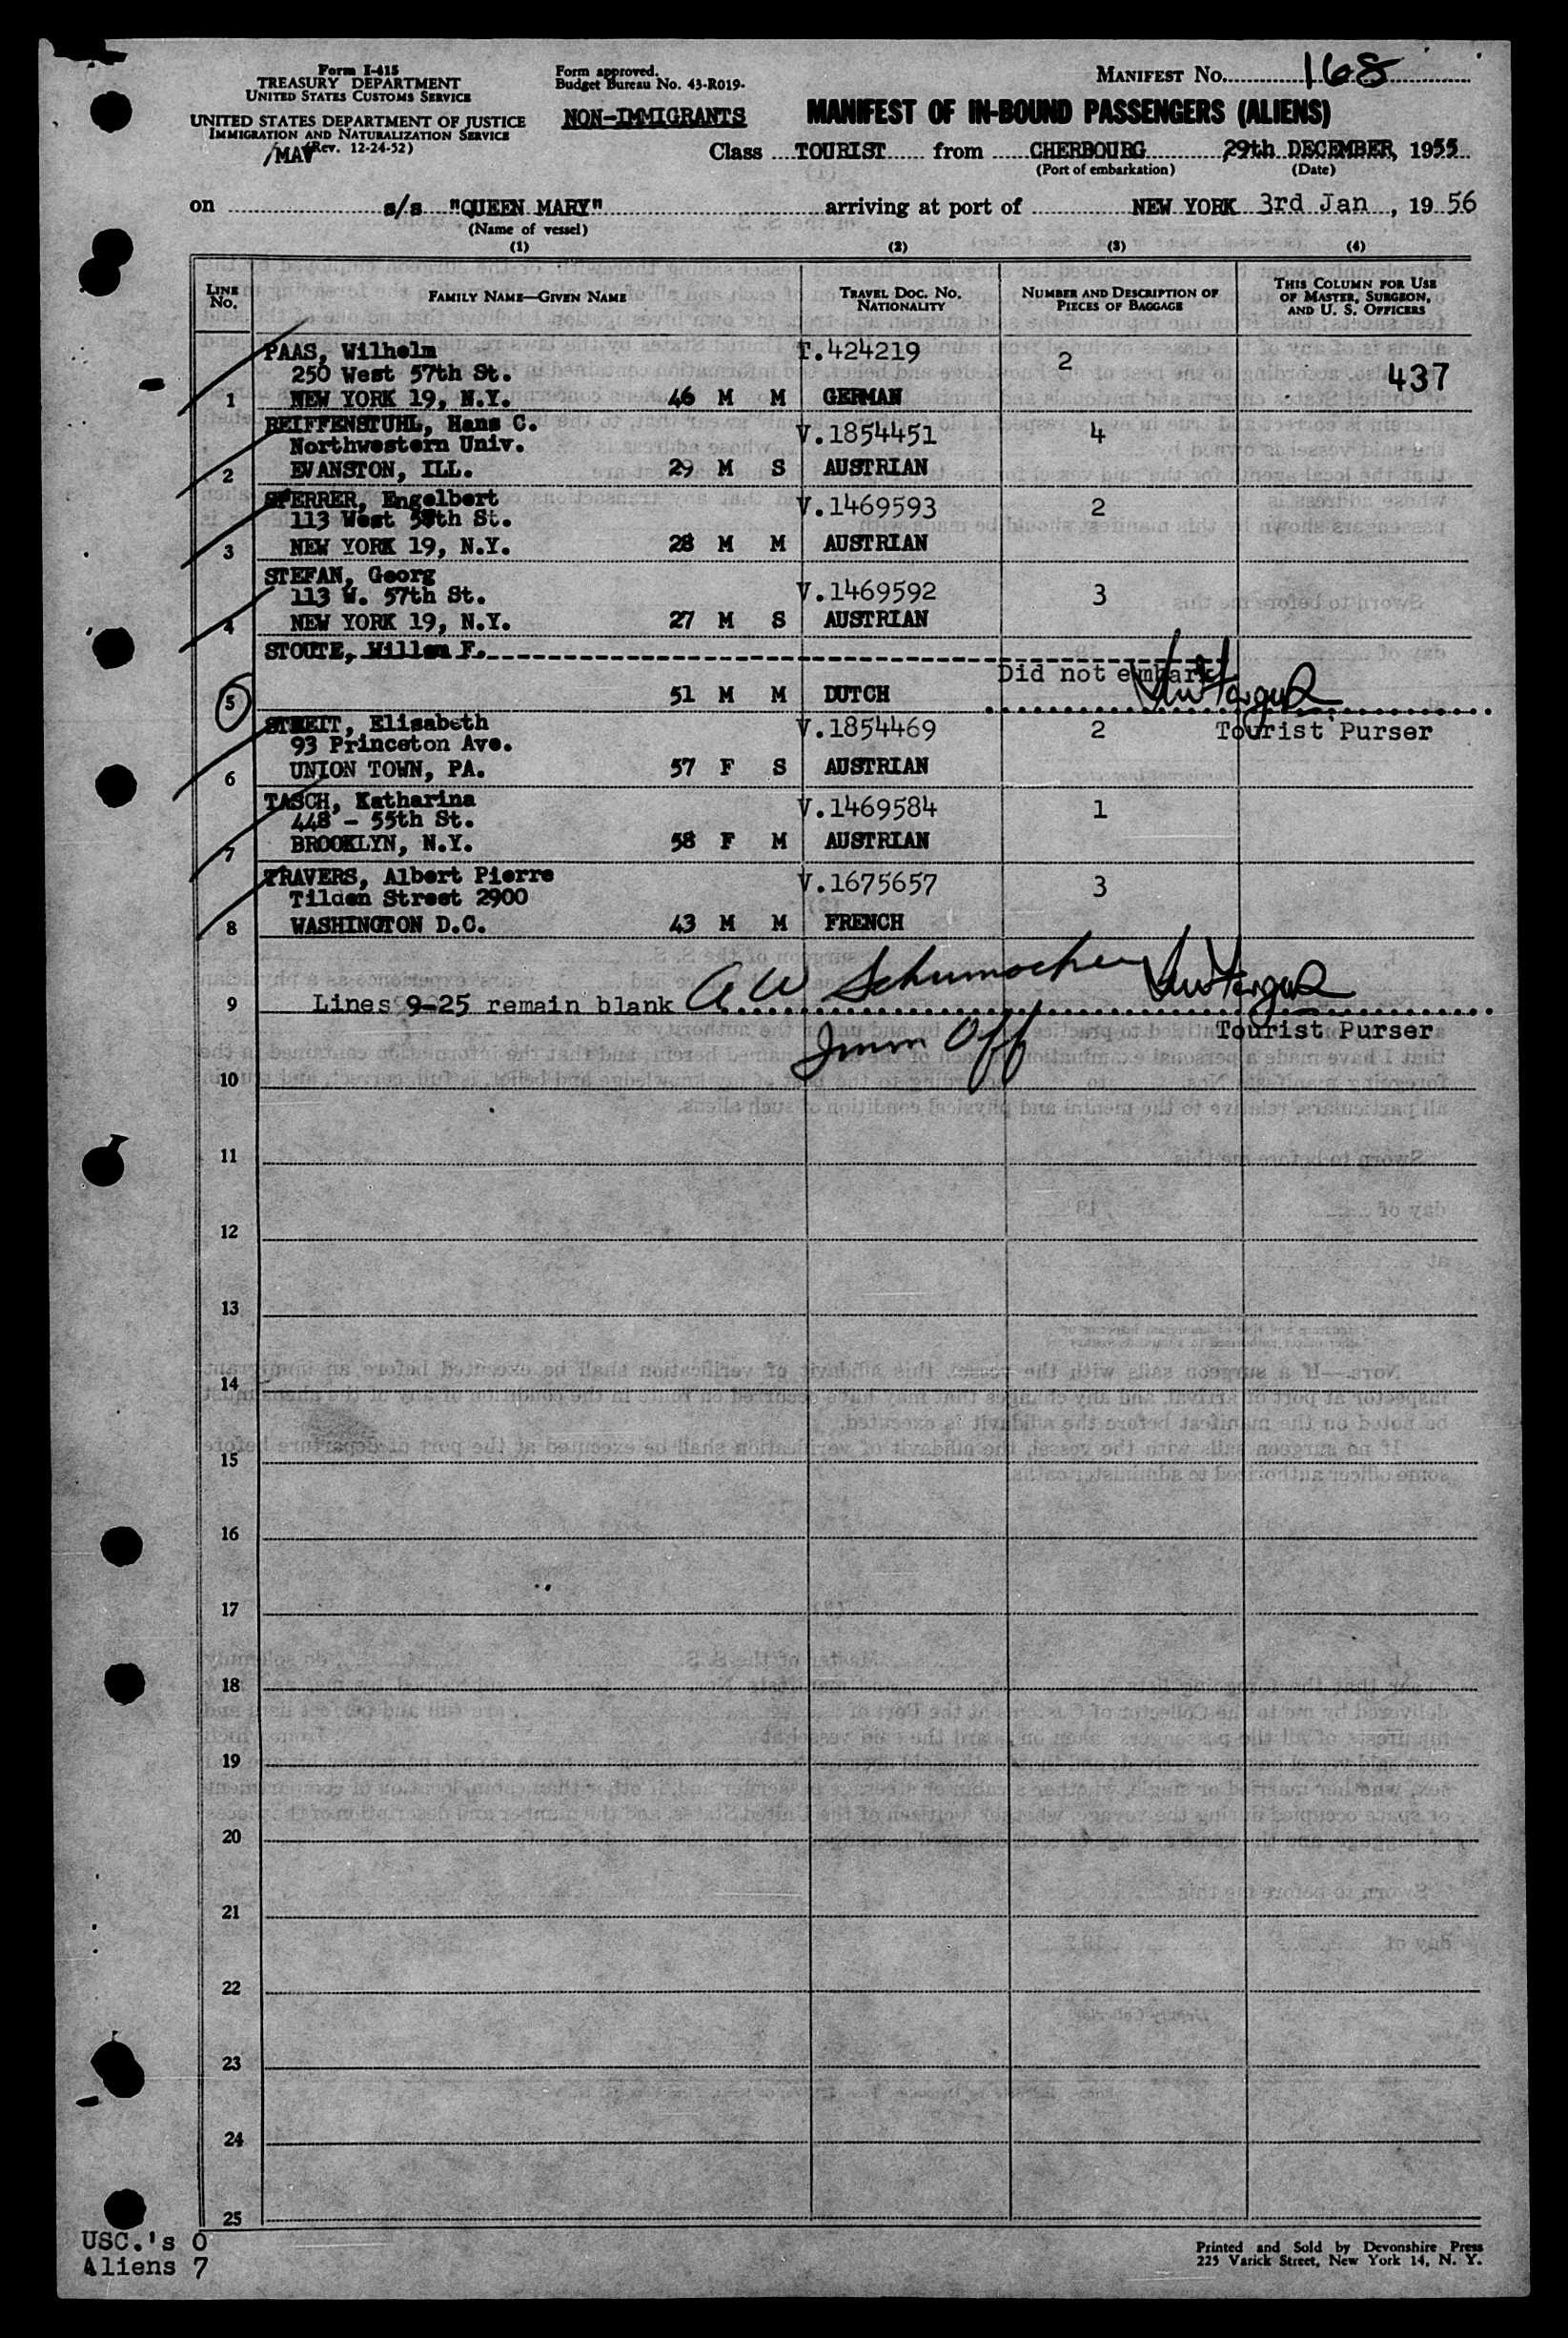 Form I-415
TREASURY DEPARTMENT
UNITED STATES CUSTOMS SERVICE
UNITED STATES DEPARTMENT OF JUSTICE
IMMIGRATION AND NATURALIZATION SERVICE
(Rev. 12-24-52)
/MAV
Form approved.
Budget Bureau No. 43-R019.
NON-IMMIGRANTS
MANIFEST NO. 168
MANIFEST OF IN-BOUND PASSENGERS (ALIENS)
Class TOURIST from CHERBOURG, 29th DECEMBER, 1955
(Port of embarkation) (Date)
on s/s "QUEEN MARY" arriving at port of NEW YORK 3rd Jan, 1956
(Name of vessel)
(1) (2) (3) (4)
LINE NO. FAMILY NAME—GIVEN NAME TRAVEL DOC. NO. NATIONALITY NUMBER AND DESCRIPTION OF PIECES OF BAGGAGE THIS COLUMN FOR USE OF MASTER, SURGEON, AND U. S. OFFICERS
PAAS, Wilhelm T.424219 2
250 West 57th St. 437
1 NEW YORK 19, N.Y. 46 M M GERMAN
REIFFENSTUHL, Hans C.
Northwestern Univ. V.1854451 4
2 EVANSTON, ILL. 29 M S AUSTRIAN
SPERRER, Engelbert V.1469593 2
113 West 58th St.
3 NEW YORK 19, N.Y. 28 M M AUSTRIAN
STEFAN, Georg
113 W. 57th St. V.1469592 3
4 NEW YORK 19, N.Y. 27 M S AUSTRIAN
STOUTE, Willem F.
Did not embark
5 51 M M DUTCH
STREIT, Elisabeth V.1854469 2 Tourist Purser
93 Princeton Ave.
6 UNION TOWN, PA. 57 F S AUSTRIAN
TASCH, Katharina V.1469584 1
448 - 55th St.
7 BROOKLYN, N.Y. 58 F M AUSTRIAN
TRAVERS, Albert Pierre V.1675657 3
Tilden Street 2900
8 WASHINGTON D.C. 43 M M FRENCH
9 Lines 9-25 remain blank A W Schumacher
Imm Off Tourist Purser
10
11
12
13
14
15
16
17
18
19
20
21
22
23
24
25
USC.'s 0
Aliens 7
Printed and Sold by Devonshire Press
225 Varick Street, New York 14, N. Y.